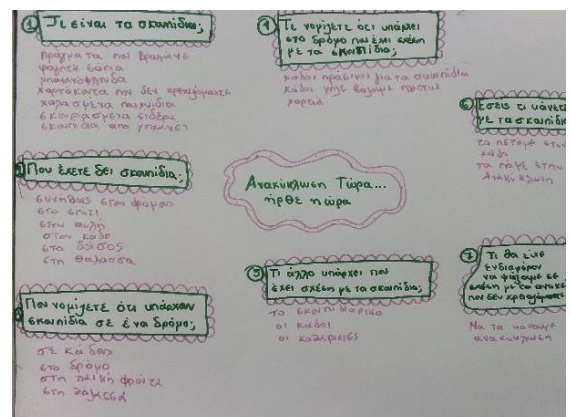 ① Τι είναι τα σκουπίδια;
πράγματα που βρωμάνε
φαγητά σάπια
μπανανόφλουδα
χαρτόκουτα που δεν χρειαζόμαστε
χαλασμένα παιχνίδια
σκουριασμένα σίδερα
σκουπίδια από μηχανές
Που έχετε δει σκουπίδια;
συνήθως στον δρόμο
στο σπίτι
στην αυλή
στον κάδο
στο δάσος
στη θάλασσα
Που νομίζετε ότι υπάρχουν
σκουπίδια σε ένα δρόμο;
σε κάδους
στο δρόμο
στη
στη θάλασσα
④ Τι νομίζετε ότι υπάρχει
στο δρόμο που έχει σχέση
με τα σκουπίδια;
κάδοι πράσινοι για τα σκουπίδια
κάδοι μπλε βάζουμε
χαρτιά
Ανακύκλωση Τώρα...
ήρθε η ώρα
⑤ Τι άλλο υπάρχει που
έχει σχέση με τα σκουπίδια;
το σκουπιδιάρικο
οι κάδοι
οι καθαριστές
⑥ Εσείς τι κάνετε
με τα σκουπίδια
τα πετάμε στον
κάδο
τα πάμε στην
Ανακύκλωση
⑦ Τι θα είχε
ενδιαφέρον
να ψάξουμε σε
σχέση με τα
που δεν χρειαζόμαστε
Να τα κάνουμε
ανακύκλωση